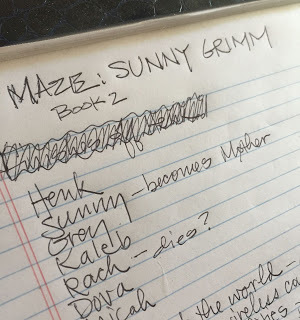 MAZE: SUNNY GRIMM
Book 2
Henk
Sunny – becomes Mother
Grey
Kaleb
Rach – dies?
Dova
the world –
wireless ca